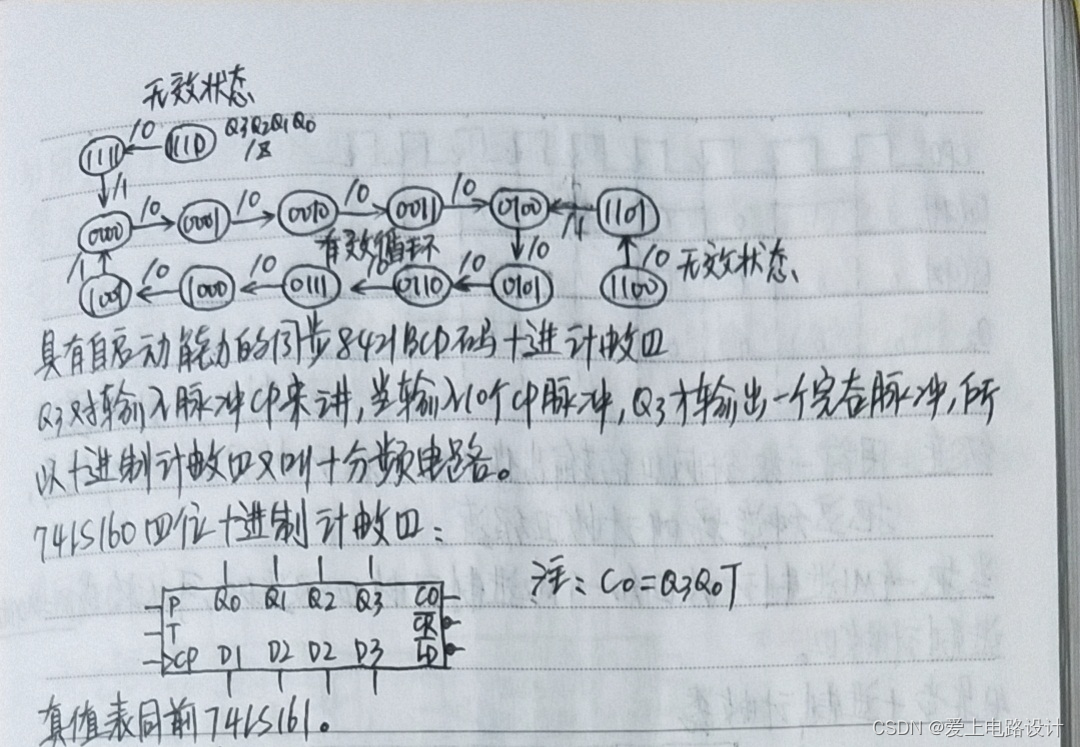 无效状态
1111 /0 1110 Q3Q2Q1Q0 /Z
/1
0000 /0 0001 /0 0010 /0 0011 /0 0100 /1 1101
有效循环
/1 /0 /0 /0 /0 /0 /0 无效状态
1001 1000 0111 0110 0101 1100
具有自启动能力的同步8421BCD码十进计数四
Q3对输入脉冲CP来讲,当输入10个CP脉冲,Q3才输出一个完全脉冲,所
以十进制计数四又叫十分频电路。
74LS160四位十进制计数四:
注:CO=Q3Q0T
P Q0 Q1 Q2 Q3 CO
T CR
CP D1 D2 D2 D3 LD
真值表同前74LS161。
CSDN @爱上电路设计